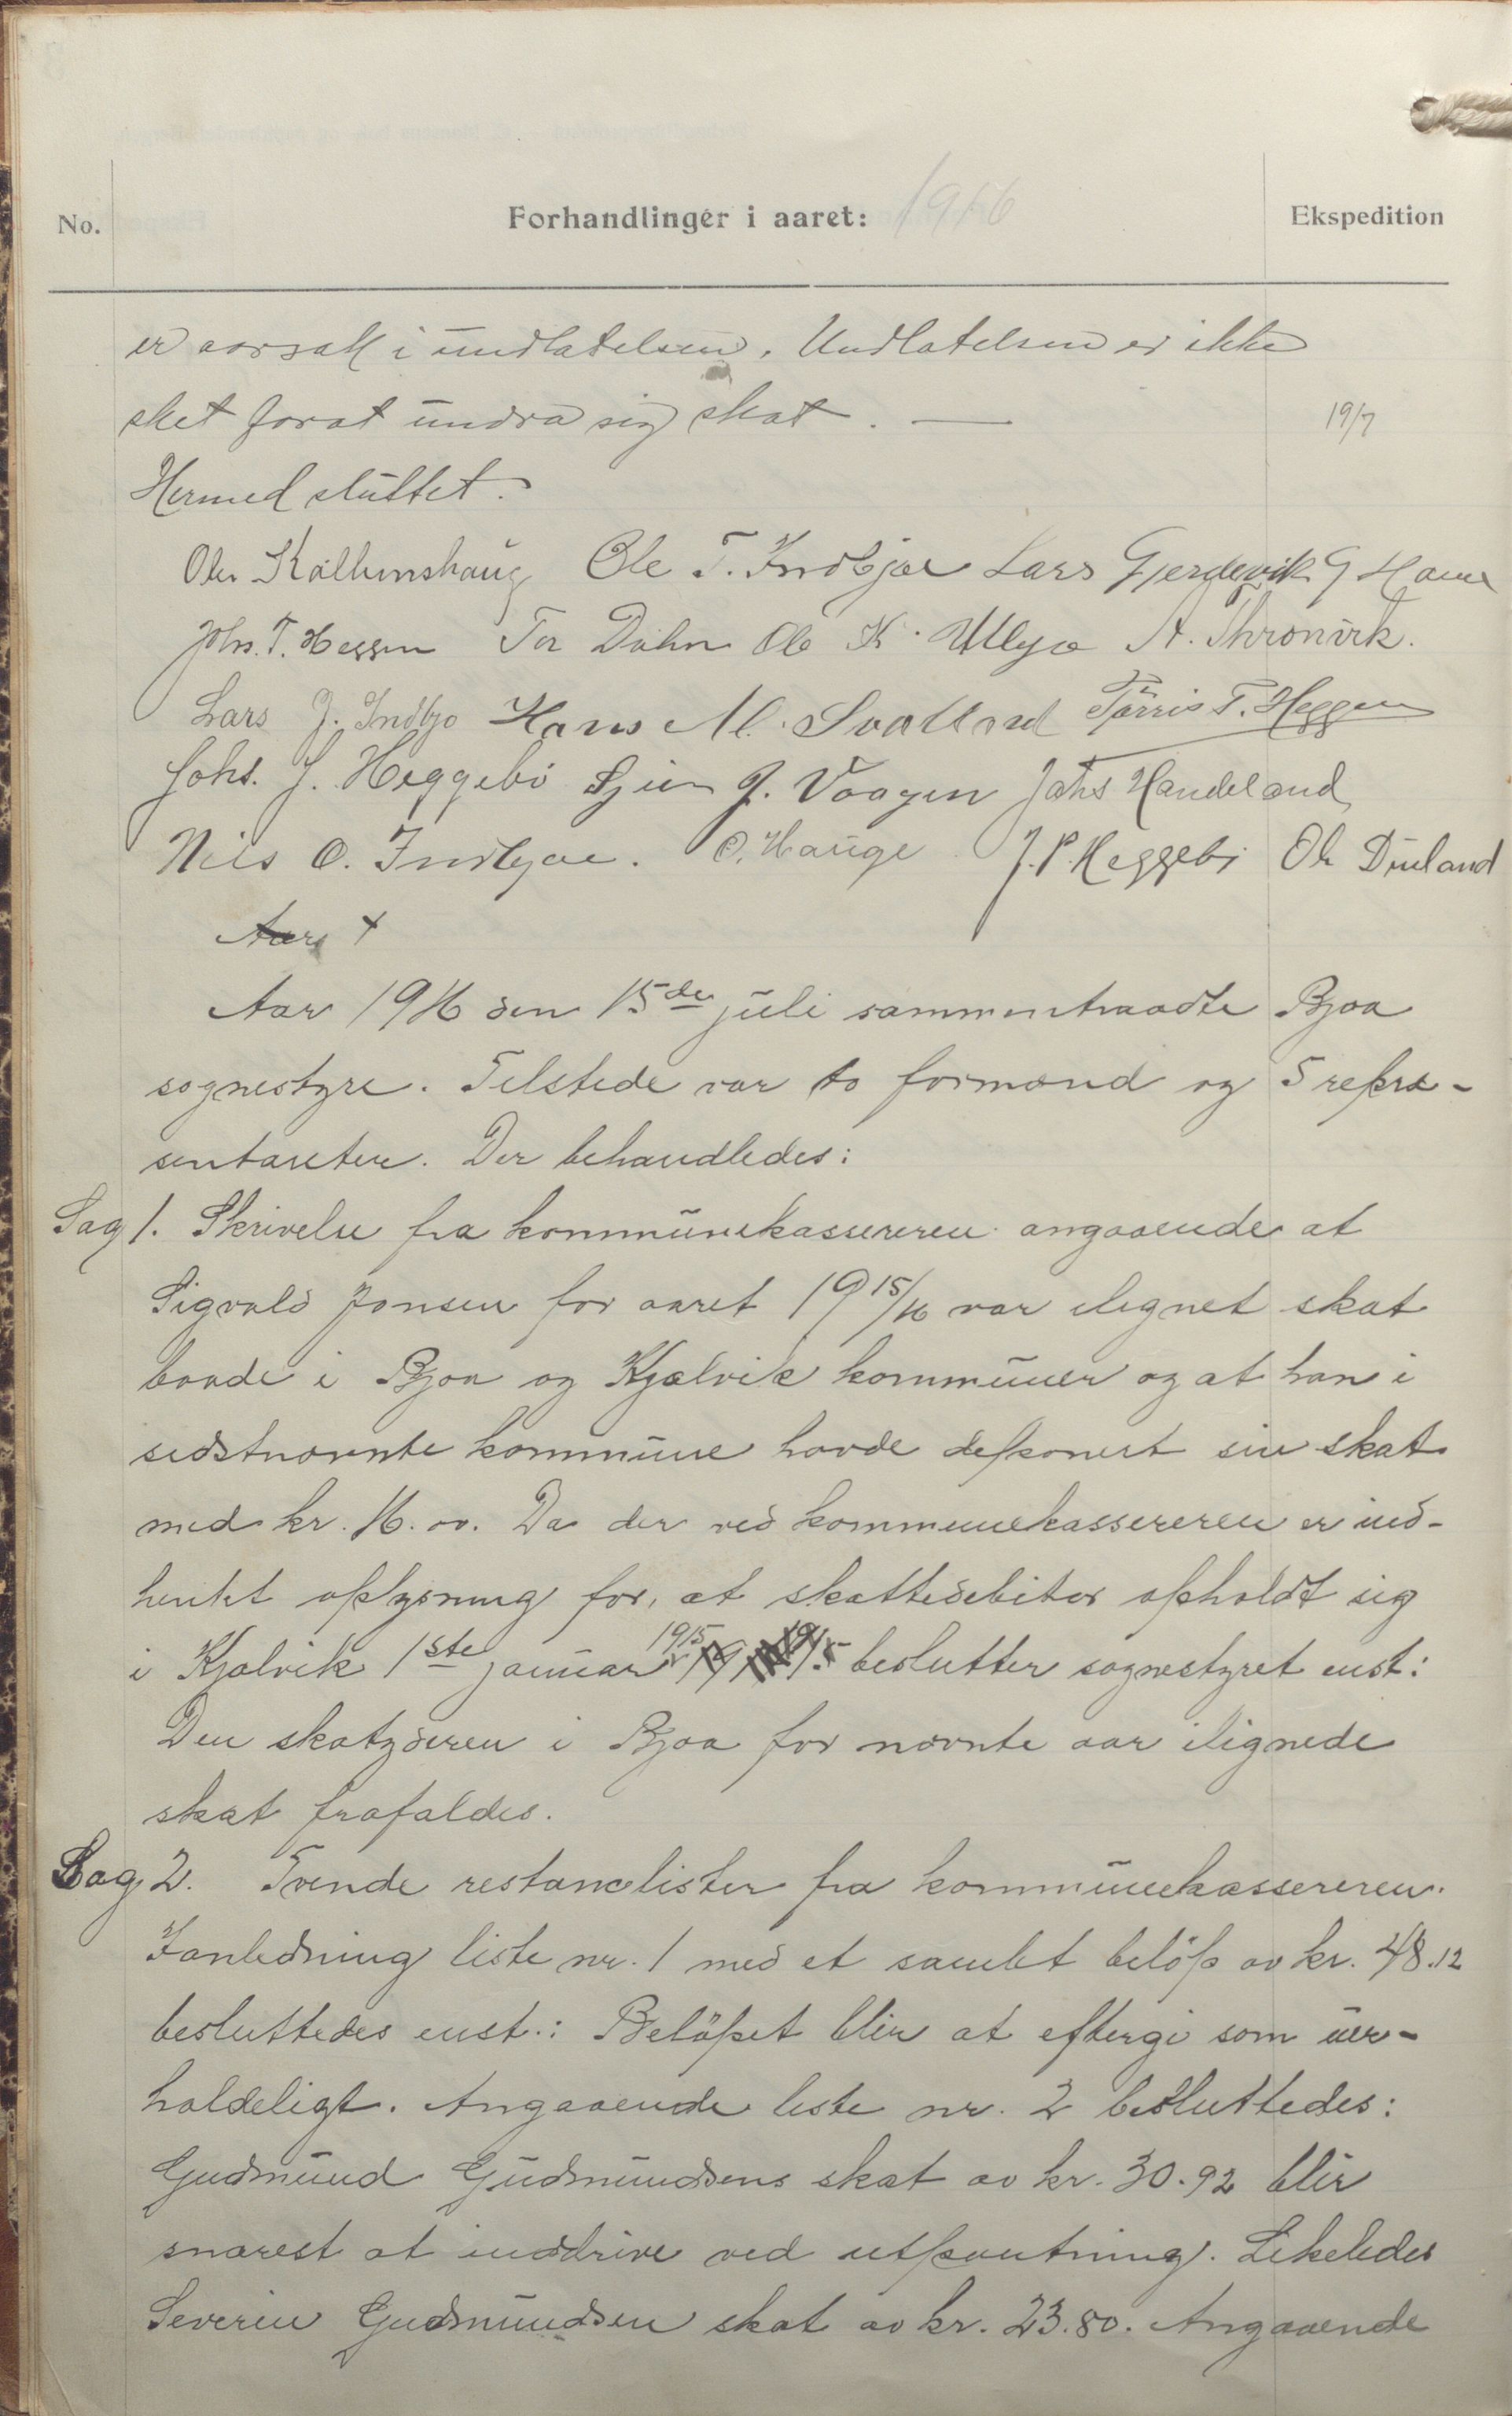 No. Forhandlinger i aaret: 1916 Ekspedition
er aarsak i undlatelsen. Undlatelsen er ikke
sket forat undra sig skat. — 19/7
Hermed sluttet.
Ole T. Indbjoe Lars Gjerdevik
Tor Dahn Ole K. Ulbjoe
Lars J. Indbjo Hans M. Svalland Tørris T. Heggen
Johs. J. Heggebö J. Vaagen Johs Handeland
Nils O. Indbjoe. O. Hauge J. P. Heggebö Ole
Aars +
Aar 1916 den 15de juli sammentraadte Bjoa
sognestyre. Tilstede var to formænd og 5 repræ-
sentanter. Der behandledes:
Sag 1. Skrivelse fra kommunekassereren angaaende at
Sigvald Jonsen for aaret 1915/16 var ilignet skat
baade i Bjoa og Kjælvik kommuner og at han i
sidstnævnte kommune havde deponert sin skat
med kr. 16.00. Da der ved kommunekassereren er ind-
hentet oplysning for, at skattedebitor opholdt sig
i Kjælvik 1ste januar 1915 beslutter sognestyret enst:
Den skatyderen i Bjoa for nævnte aar ilignede
skat frafaldes.
Sag 2. Tvende restancelister fra kommunekassereren.
I anledning liste nr. 1 med et samlet beløp av kr. 48.12
besluttedes enst.: Beløpet blir at eftergi som uer-
holdeligt. Angaaende liste nr. 2 besluttedes:
Gudmund Gudmundsens skat av kr. 30.92 blir
snarest at inddrive ved utpantning. Likeledes
Severin Gudmundsen skat av kr. 23.80. Angaaende